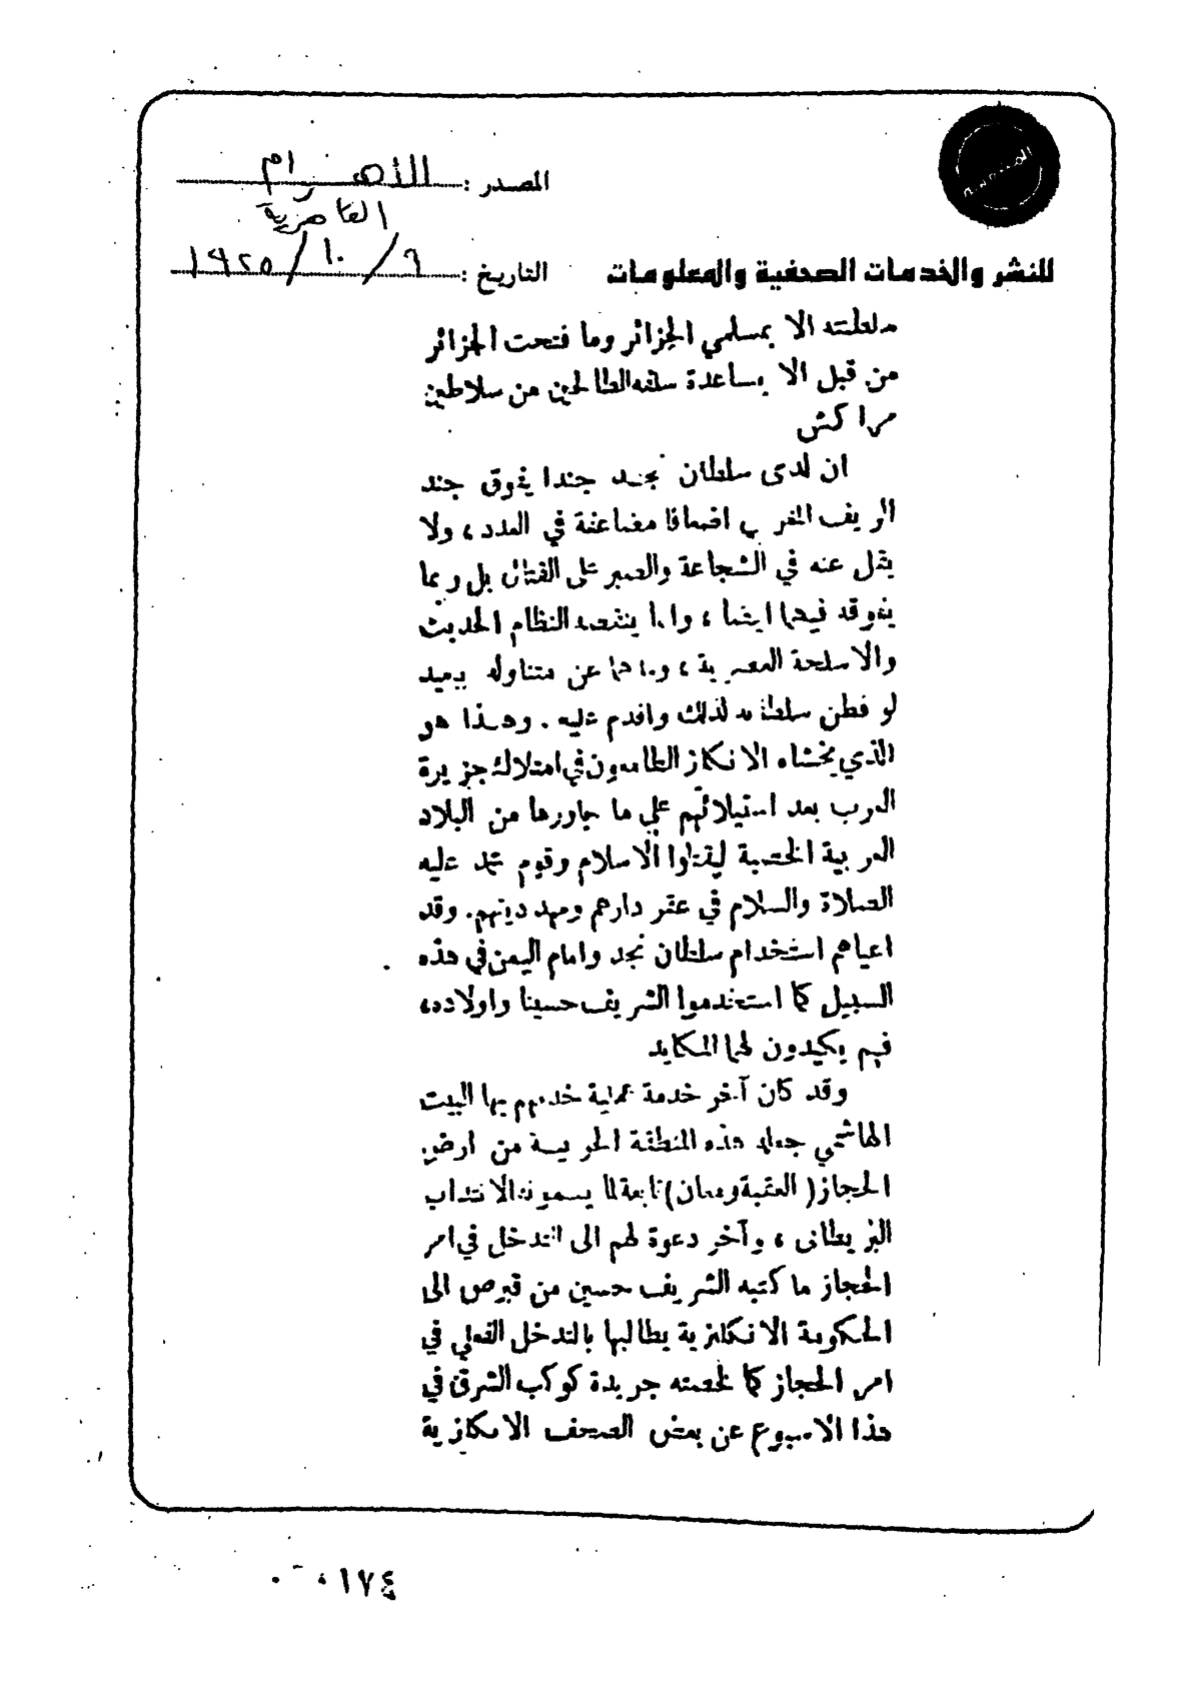 المصدر : الأهرام
القاهرية
للنشر والخدمات الصحفية والمعلومات
التاريخ : ٦ / ١٠ / ١٩٢٥
الا بمسلمي الجزائر وما فتحت الجزائر
من قبل الا بمساعدة سلفه الطالحين من سلاطين
مراكش
ان لدى سلطان نجد جندا يفوق جند
الريف المغربي اضعافا مضاعفة في العدد ، ولا
يقل عنه في الشجاعة والصبر على القتال بل ربما
يفوقه فيهما ايضا ، وانما ينقصه النظام الحديث
والاسلحة العصرية ، وما هما عن متناوله ببعيد
لو فطن سلطانه لذلك واقدم عليه . وهذا هو
الذي يخشاه الانكليز الطامعون في امتلاك جزيرة
العرب بعد استيلائهم على ما جاورها من البلاد
العربية الخصبة ليقتلوا الاسلام وقوم محمد عليه
الصلاة والسلام في عقر دارهم ومهد دينهم. وقد
اعياهم استخدام سلطان نجد وامام اليمن في هذه
السبيل كما استخدموا الشريف حسينا واولاده،
فهم يكيدون لهما المكايد
وقد كان آخر خدمة عملية خدمهم بها البيت
الهاشمي جعله هذه المنطقة الحربية من ارض
الحجاز ( العقبة ومعان ) تابعة لما يسمونه الانتداب
البريطاني ، وآخر دعوة لهم الى التدخل في امر
الحجاز ما كتبه الشريف حسين من قبرص الى
الحكومة الانكليزية يطالبها بالتدخل الفعلي في
امر الحجاز كما لخصته جريدة كوكب الشرق في
هذا الاسبوع عن بعض الصحف الانكليزية
٠١٧٤